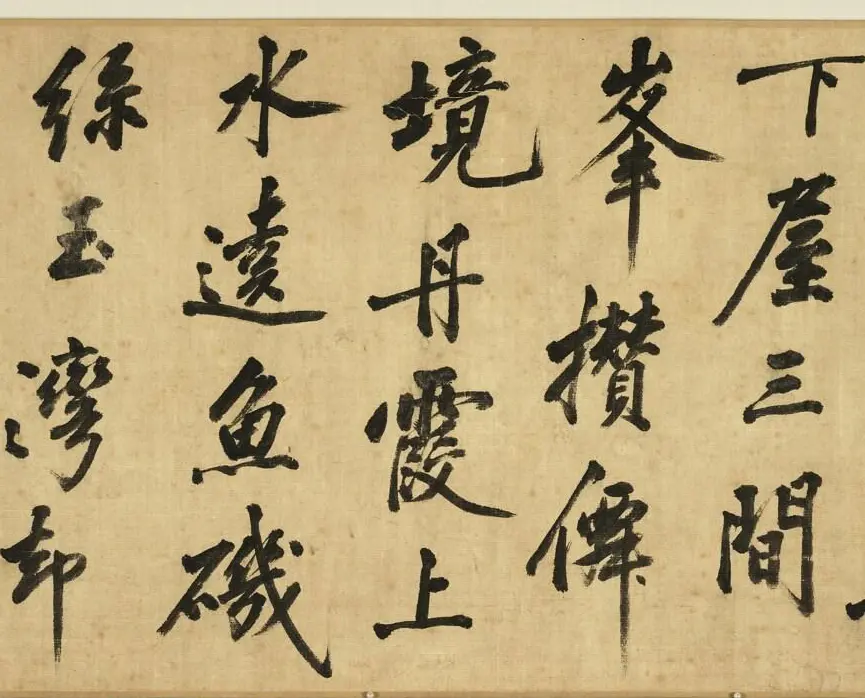 下屋三間
峯攢僊
境丹霞上
水遶魚磯
綠玉灣却